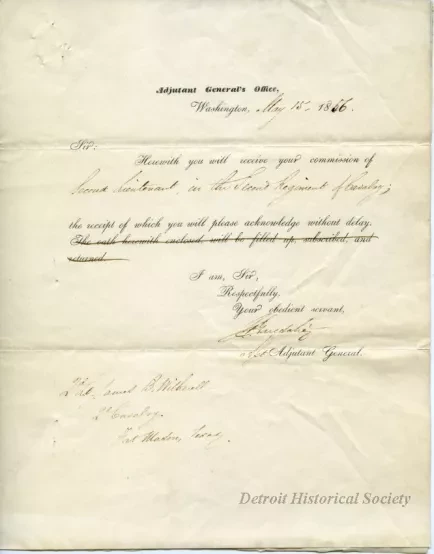 Adjutant General's Office,
Washington, May 15 1856.
Sir:
Herewith you will receive your commission of
Second Lieutenant, in the Second Regiment of Cavalry;
the receipt of which you will please acknowledge without delay.
The oath herewith enclosed, will be filled up, subscribed, and
returned
I am, Sir,
Respectfully,
Your obedient servant,
Asst Adjutant General.
James B. Witherell
2d Cavalry,
Fort Mason, Texas.
Detroit Historical Society